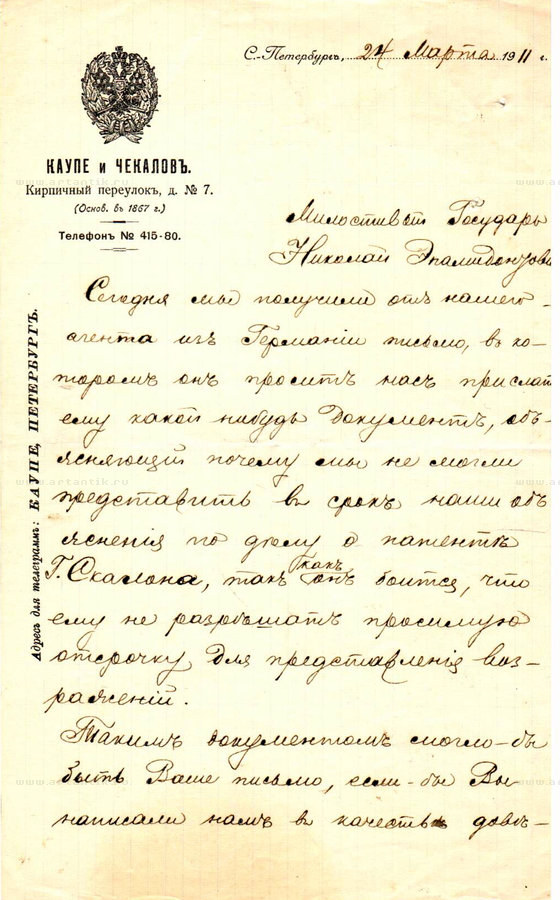 С.-Петербургъ, 24 Марта 1911 г.
КАУПЕ и ЧЕКАЛОВЪ.
Кирпичный переулокъ, д. № 7.
(Основ. въ 1867 г.)
Телефонъ № 415-80.
Адресъ для телеграммъ: КАУПЕ, ПЕТЕРБУРГЪ.
Милостивый Государь
Николай Эпамидонзови
Сегодня мы получили отъ нашего
агента изъ Германіи письмо, въ ко-
торомъ онъ проситъ насъ прислать
ему какой нибудь документъ, объ-
ясняющій почему мы не могли
представить въ срокъ наши объ
ясненія по дѣлу о патентѣ
Г. Скалона, такъ какъ онъ боится, что
ему не разрѣшатъ просимую
отсрочку для представленія воз-
раженій.
Такимъ документомъ могло-бы
быть Ваше письмо, если-бы Вы
написали намъ въ качествѣ довѣ-
www.artantik.ru